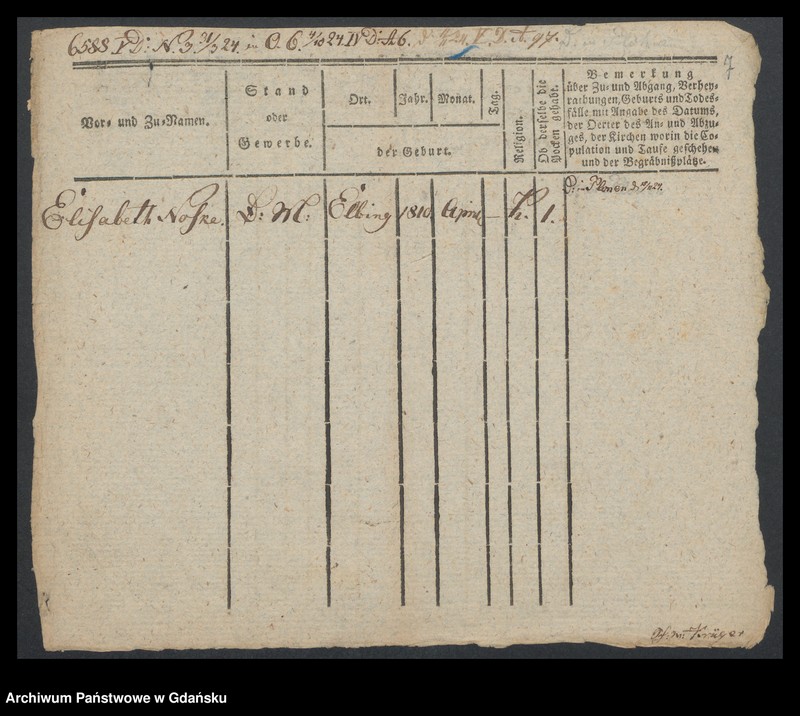 6588 V D: N. 3. 1/3 24. in O. 6. 4/10 24 IV D: A 6. V. D. A. 97.
7
Vor- und Zu-Namen.
Stand
oder
Gewerbe.
Ort.
Jahr.
Monat.
Tag.
der Geburt.
Religion.
Ob derselbe die
Pocken gehabt.
Bemerkung
über Zu- und Abgang, Verhey-
rathungen, Geburts und Todes-
fälle mit Angabe des Datums,
der Oerter des An- und Abzu-
ges, der Kirchen worin die Co-
pulation und Taufe geschehen
und der Begräbnißplätze.
Elisabeth Noske.
D: M:
Elbing
1810
April
–
K.
1.
Krüger
Archiwum Państwowe w Gdańsku